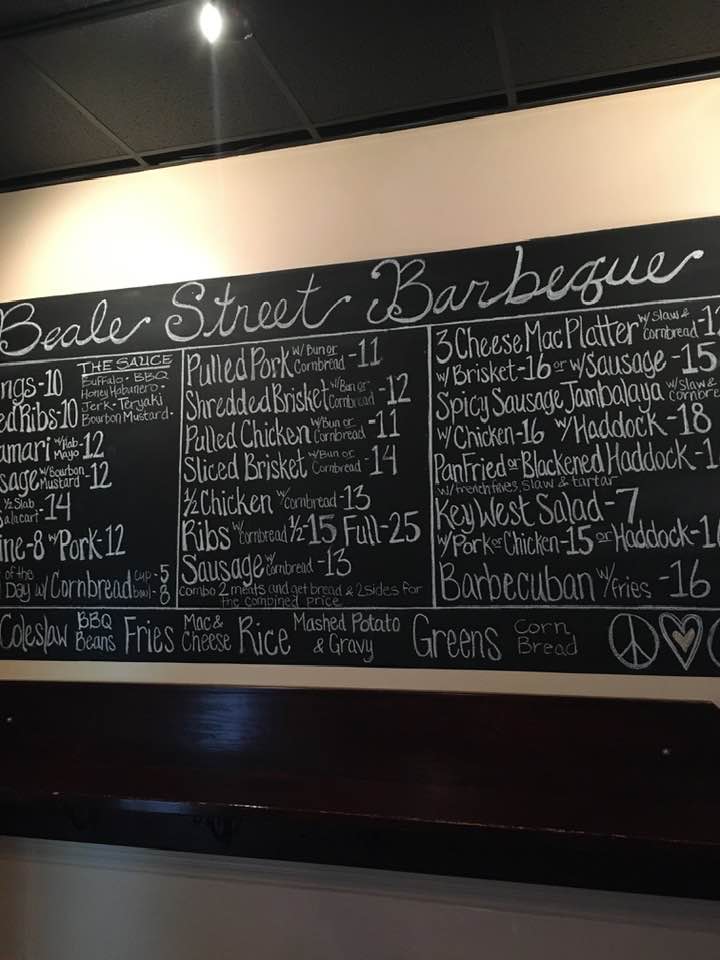 Beale Street Barbeque
ngs-10
edRibs-10
amari w/Hab Mayo-12
sage w/Bourbon Mustard-12
½ Slab
alacart-14
ine-8 w/Pork-12
of the
Day w/Cornbread cup-5
bowl-8
THE SAUCE
Buffalo- BBQ
Honey Habanero-
Jerk-Teryaki
Bourbon Mustard-
Pulled Pork w/Bun or Cornbread-11
Shredded Brisket w/Bun or Cornbread-12
Pulled Chicken w/Bun or Cornbread-11
Sliced Brisket w/Bun or Cornbread-14
½ Chicken w/cornbread-13
Ribs w/Cornbread ½-15 Full-25
Sausage w/cornbread-13
combo 2 meats and get bread & 2 sides for
the combined price
3 Cheese Mac Platter w/Slaw & cornbread
w/Brisket-16 or w/Sausage-15
Spicy Sausage Jambalaya w/Slaw &
w/Chicken-16 w/Haddock-18
PanFried or Blackened Haddock
w/french fries, slaw & tartar
Key West Salad-7
w/Pork or Chicken-15 or Haddock
Barbecuban w/fries-16
Coleslaw BBQ Beans Fries Mac & Cheese Rice Mashed Potato & Gravy Greens Corn Bread